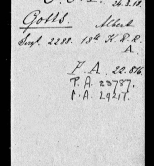 26.3.18.
Gotts. Albert
Sergt. 2288. 18th K.R.R.
A.
F.A. 22.816.
P.A. 23787.
P.A. 29217.